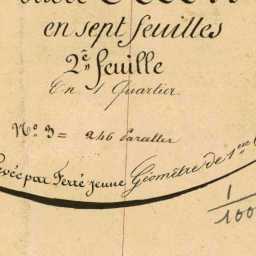 en sept feuilles
2e feuille
En 1 Quartier
No. 3 = 246 Parcelles
par Ferré jeune Géomètre de 1ere
1/100